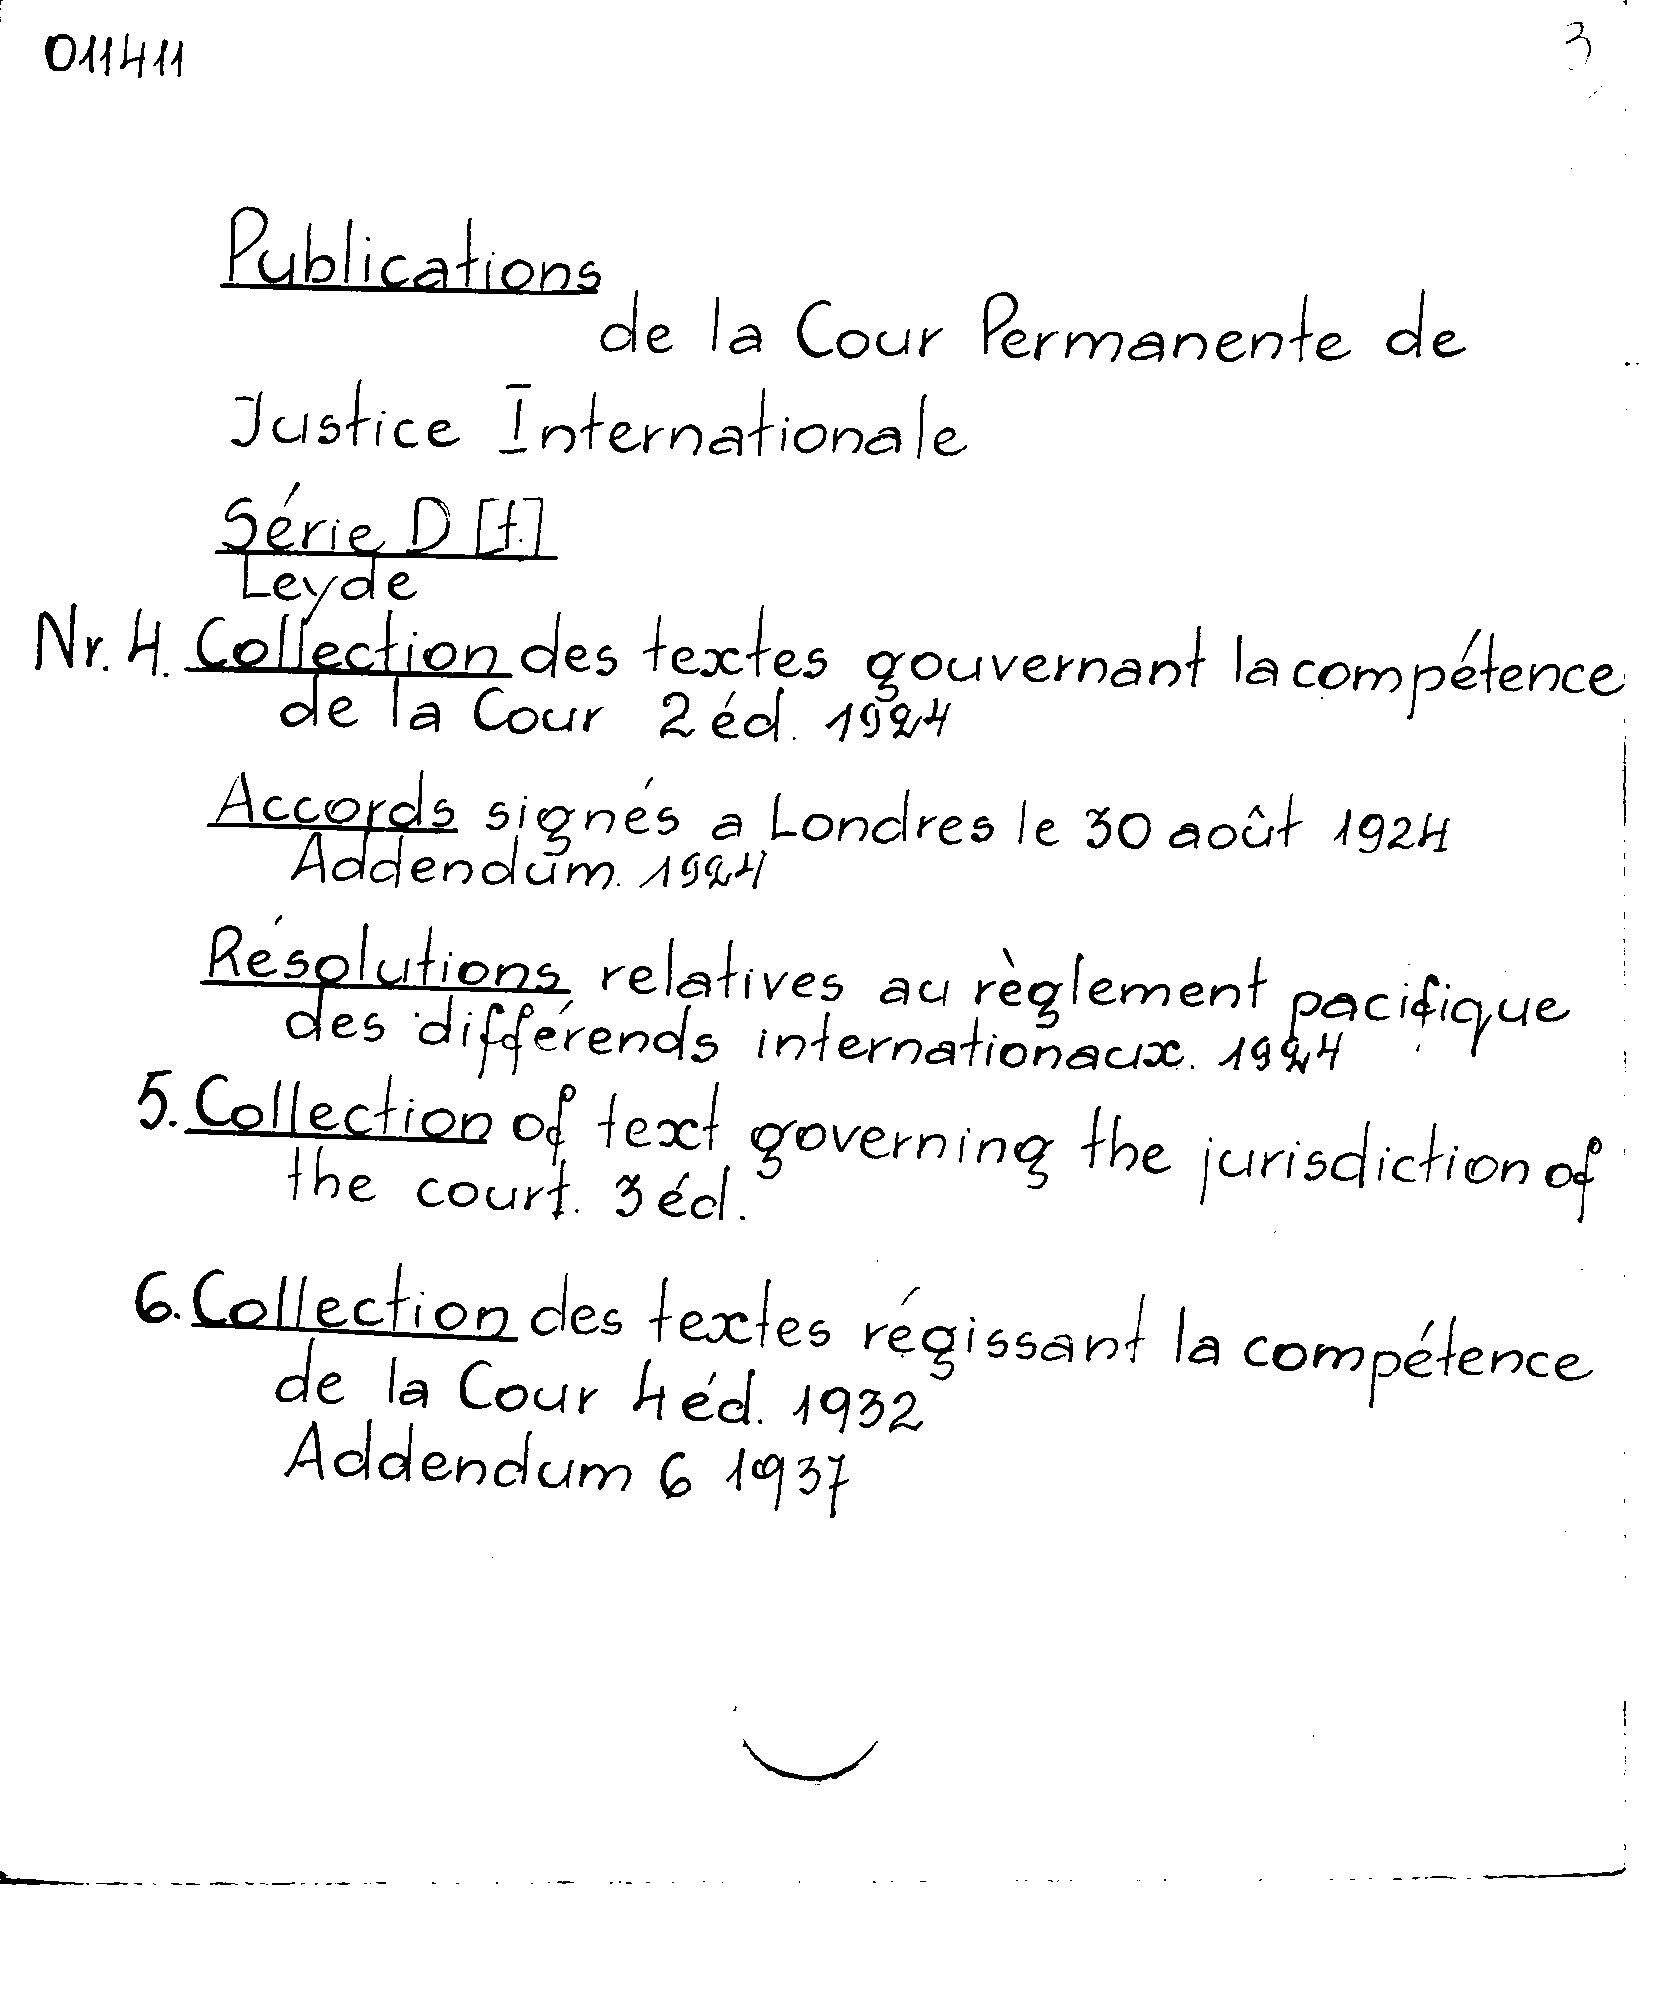 011411
3
Publications
de la Cour Permanente de
Justice Internationale
Série D [f.]
Leyde
Nr. 4. Collection des textes gouvernant la compétence
de la Cour 2 éd. 1924
Accords signés a Londres le 30 août 1924
Addendum. 1924
Résolutions relatives au règlement pacifique
des différends internationaux. 1924
5. Collection of text governing the jurisdiction of
the court. 3 éd.
6. Collection des textes régissant la compétence
de la Cour 4 éd. 1932
Addendum 6 1937